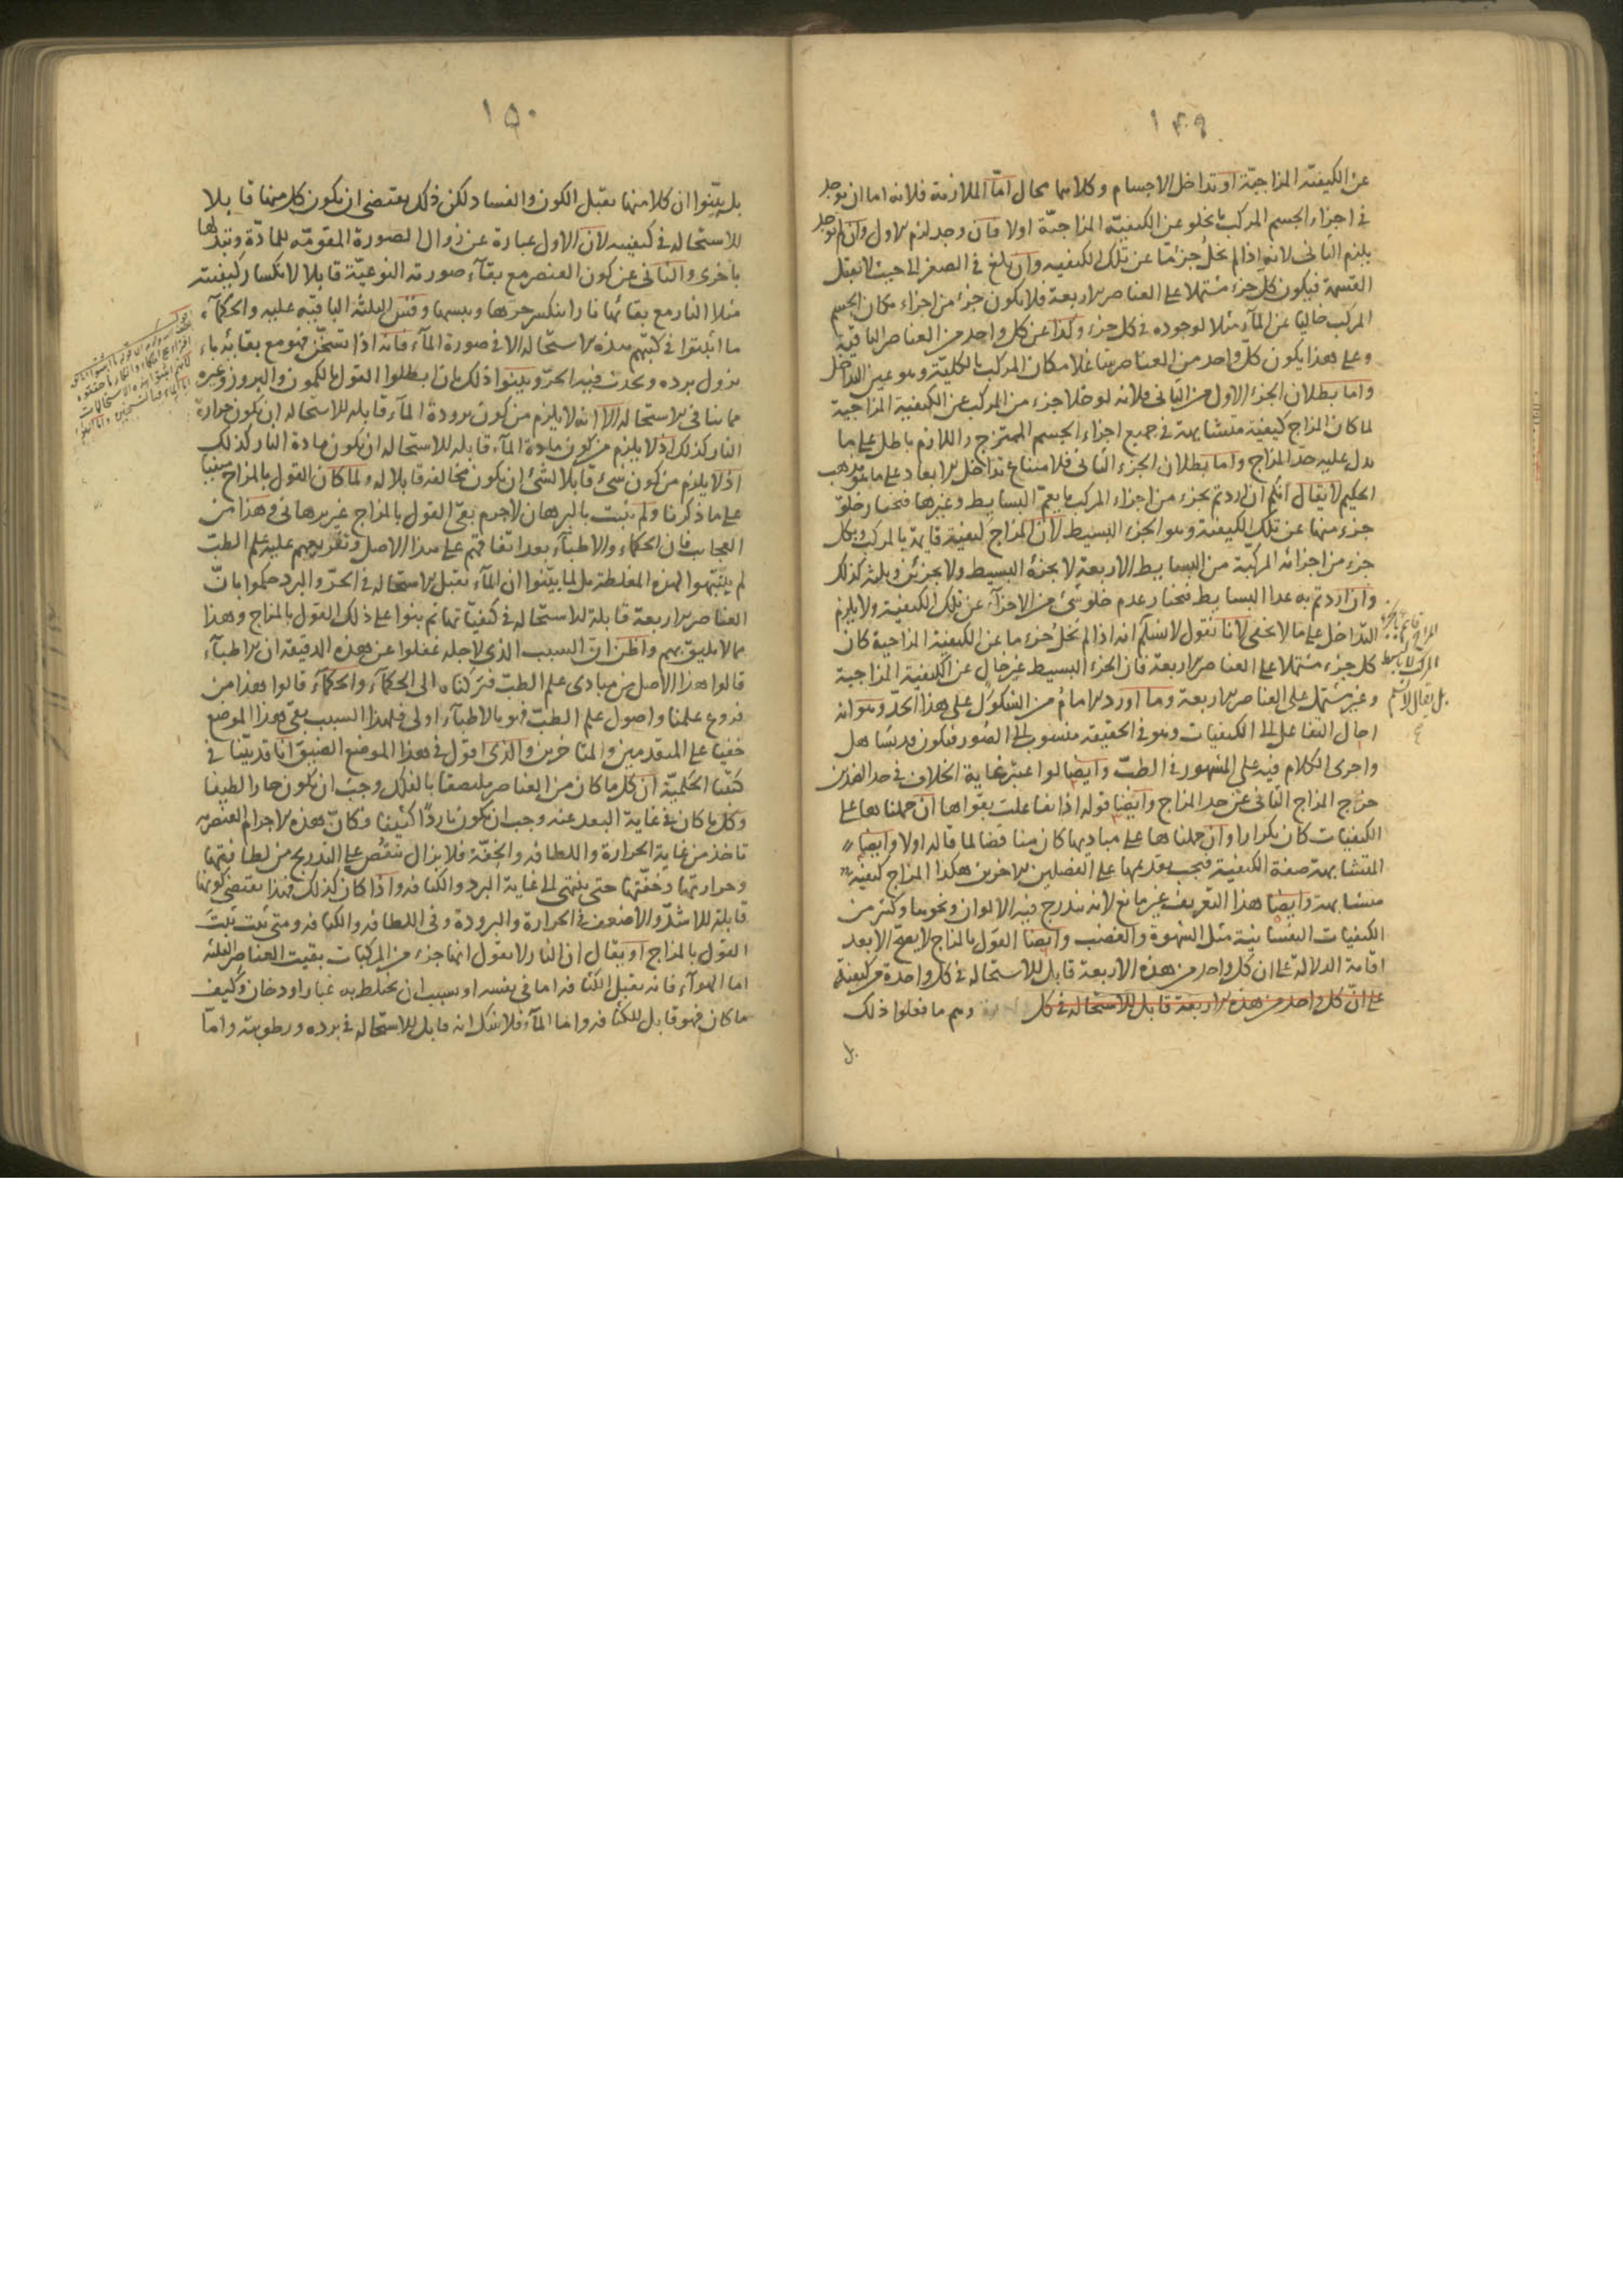 ١٤٩
عن الكيفية المزاجية او تداخل الاجسام وكلاهما محال اما الملازمة فلانه اما ان يوجد
في اجزاء الجسم المركب ما يخلو عن الكيفية المزاجية اولا فان وجد لزم الاول وان لم يوجد
يلزم الثاني لانه اذا لم يخل جزء ما عن تلك الكيفية وان بلغ في الصغر الى حيث لا يقبل
القسمة فيكون كل جزء مشتملا على العناصر الاربعة فلا يكون جزء من اجزاء مكان الجسم
المركب خاليا عن الماء مثلا لوجوده في كل جزء وكذا عن كل واحد من العناصر الباقية
وعلى هذا يكون كل واحد من العناصر شاغلا مكان المركب بالكلية وهو عين التداخل
واما بطلان الجزء الاول من التالي فلانه لو خلا جزء من المركب عن الكيفية المزاجية
لما كان المزاج كيفية متشابهة في جميع اجزاء الجسم الممتزج واللازم باطل على ما
يدل عليه حد المزاج واما بطلان الجزء الثاني فلامتناع تداخل الابعاد على ما هو مذهب
الحكيم لا يقال انكم ان اردتم بجزء من اجزاء المركب ما يعم البسايط وغيرها فنختار خلو
جزء منها عن تلك الكيفية وهو الجزء البسيط لان المزاج كيفية قايمة بالمركب وبكل
جزء من اجزائه المركبة من البسايط الاربعة لا بجزئه البسيط ولا بجزئين وبثلثة كذلك
وان اردتم به عدا البسايط فنختار عدم خلو شيء من الاجزاء عن تلك الكيفية ولا يلزم
التداخل على ما لا يخفى لانا نقول لا نسلم انه اذا لم يخل جزء ما عن الكيفية المزاجية كان
كل جزء مشتملا على العناصر الاربعة فان الجزء البسيط غير خال عن الكيفية المزاجية
وغير مشتمل على العناصر الاربعة وما اورد الامام من الشكوك على هذا الحد وهو انه
احال التفاعل الى الكيفيات وهو في الحقيقة منسوب الى الصور فيكون قد تساهل
واجرى الكلام فيه على المشهور في الطب وايضا لو اعتبر غاية الخلاف في حد الضدين
خرج المزاج الثاني عن حد المزاج وايضا قوله اذا تفاعلت بقواها ان حملناها على
الكيفيات كان تكرارا وان حملناها على مباديها كان مناقضا لما قاله اولا وايضا
المتشابهة صفة الكيفية فيجب تقديمها على الفصلين الاخرين هكذا المزاج كيفية
متشابهة وايضا هذا التعريف غير مانع لانه يندرج فيه الالوان ونحوها وكثير من
الكيفيات النفسانية مثل الشهوة والغضب وايضا القول بالمزاج لا يصح الا بعد
اقامة الدلالة على ان كل واحد من هذه الاربعة قابل للاستحالة في كل واحدة من كيفية
على ان كل واحد من هذه الاربعة قابل للاستحالة في كل وهم ما فعلوا ذلك
بل
المركب لا بالبسيط
بل يقال لا نسلم
١٥٠
بل بينوا ان كلا منها يقبل الكون والفساد لكن ذلك يقتضي ان يكون كل منها قابلا
للاستحالة في كيفيته لان الاول عبارة عن زوال الصورة المقومة للمادة وتبدلها
باخرى والثاني عن كون العنصر مع بقاء صورته النوعية قابلا لانكسار كيفيته
مثلا النار مع بقائها نارا ينكسر حرها ويبسها وقس الثلثة الباقية عليه والحكماء
ما اثبتوا في كتبهم هذه الاستحالة الا في صورة الماء فانه اذا تسخن فهو مع بقائه ماء
يزول برده ويحدث فيه الحر وبينوا ذلك بان ابطلوا القول بالكمون والبروز وغيره
مما ينافي الاستحالة الا انه لا يلزم من كون برودة الماء قابلة للاستحالة ان يكون حرارة
النار كذلك ولا يلزم من كون مادة الماء قابلة للاستحالة ان يكون مادة النار كذلك
اذ لا يلزم من كون شيء قابلا لشيء ان يكون مخالفه قابلا له ولما كان القول بالمزاج مبنيا
على ما ذكرنا ولم يثبت بالبرهان لاجرم بقي القول بالمزاج غير برهاني وهذا من
العجايب فان الحكماء والاطباء بعد اتفاقهم على هذا الاصل وتفريعهم عليه علم الطب
لم يتنبهوا لهذه المغلطة بل لما بينوا ان الماء يقبل الاستحالة في الحر والبرد حكموا بان
العناصر الاربعة قابلة للاستحالة في كيفياتها ثم بنوا على ذلك القول بالمزاج وهذا
مما لا يليق بهم واظن ان السبب الذي لاجله غفلوا عن هذه الدقيقة ان الاطباء
قالوا هذا الاصل من مبادي علم الطب فتركناه الى الحكماء والحكماء قالوا هذا من
فروع علمنا واصول علم الطب فهو بالاطباء اولى فلهذا السبب بقي هذا الموضع
خفيا على المتقدمين والمتاخرين والذي اقول في هذا الموضع الضيق انا قد بينا في
كتبنا الحكمية ان كل ما كان من العناصر ملتصقا بالفلك وجب ان يكون حارا لطيفا
وكل ما كان في غاية البعد عنه وجب ان يكون باردا كثيفا وكان هذه الاجرام العنصرية
تاخذ من غاية الحرارة واللطافة والخفة فلا يزال ينقص على التدريج من لطافتها
وحرارتها وخفتها حتى ينتهي الى غاية البرد والكثافة واذا كان كذلك فهذا يقتضي كونها
قابلة للاشد والاضعف في الحرارة والبرودة وفي اللطافة والكثافة ومتى ثبت ثبت
القول بالمزاج او يقال ان النار لا نقول انها جزء من المركبات بقيت العناصر الثلثة
اما الهواء فانه يقبل الكثافة اما في نفسه او بسبب ان يختلط به غبار او دخان وكيف
ما كان فهو قابل للكثافة واما الماء فلا شك انه قابل للاستحالة في برده ورطوبته واما